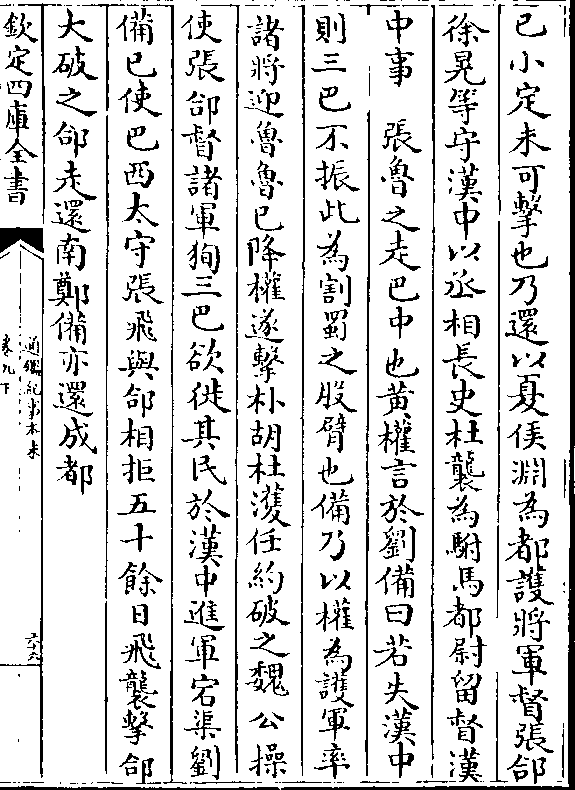 已小定未可擊也乃還以夏侯淵為都護將軍督張郃
徐晃等守漢中以丞相長史杜襲為駙馬都尉留督漢
中事　張魯之走巴中也黃權言於劉備曰若失漢中
則三巴不振此為割蜀之股臂也備乃以權為護軍率
諸將迎魯魯已降權遂擊朴胡杜濩任約破之魏公操
使張郃督諸軍徇三巴欲徙其民於漢中進軍宕渠劉
備已使巴西太守張飛與郃相拒五十餘日飛襲擊郃
大破之郃走還南鄭備亦還成都
欽定四庫全書
通鑑紀事本末
卷九下
六十六